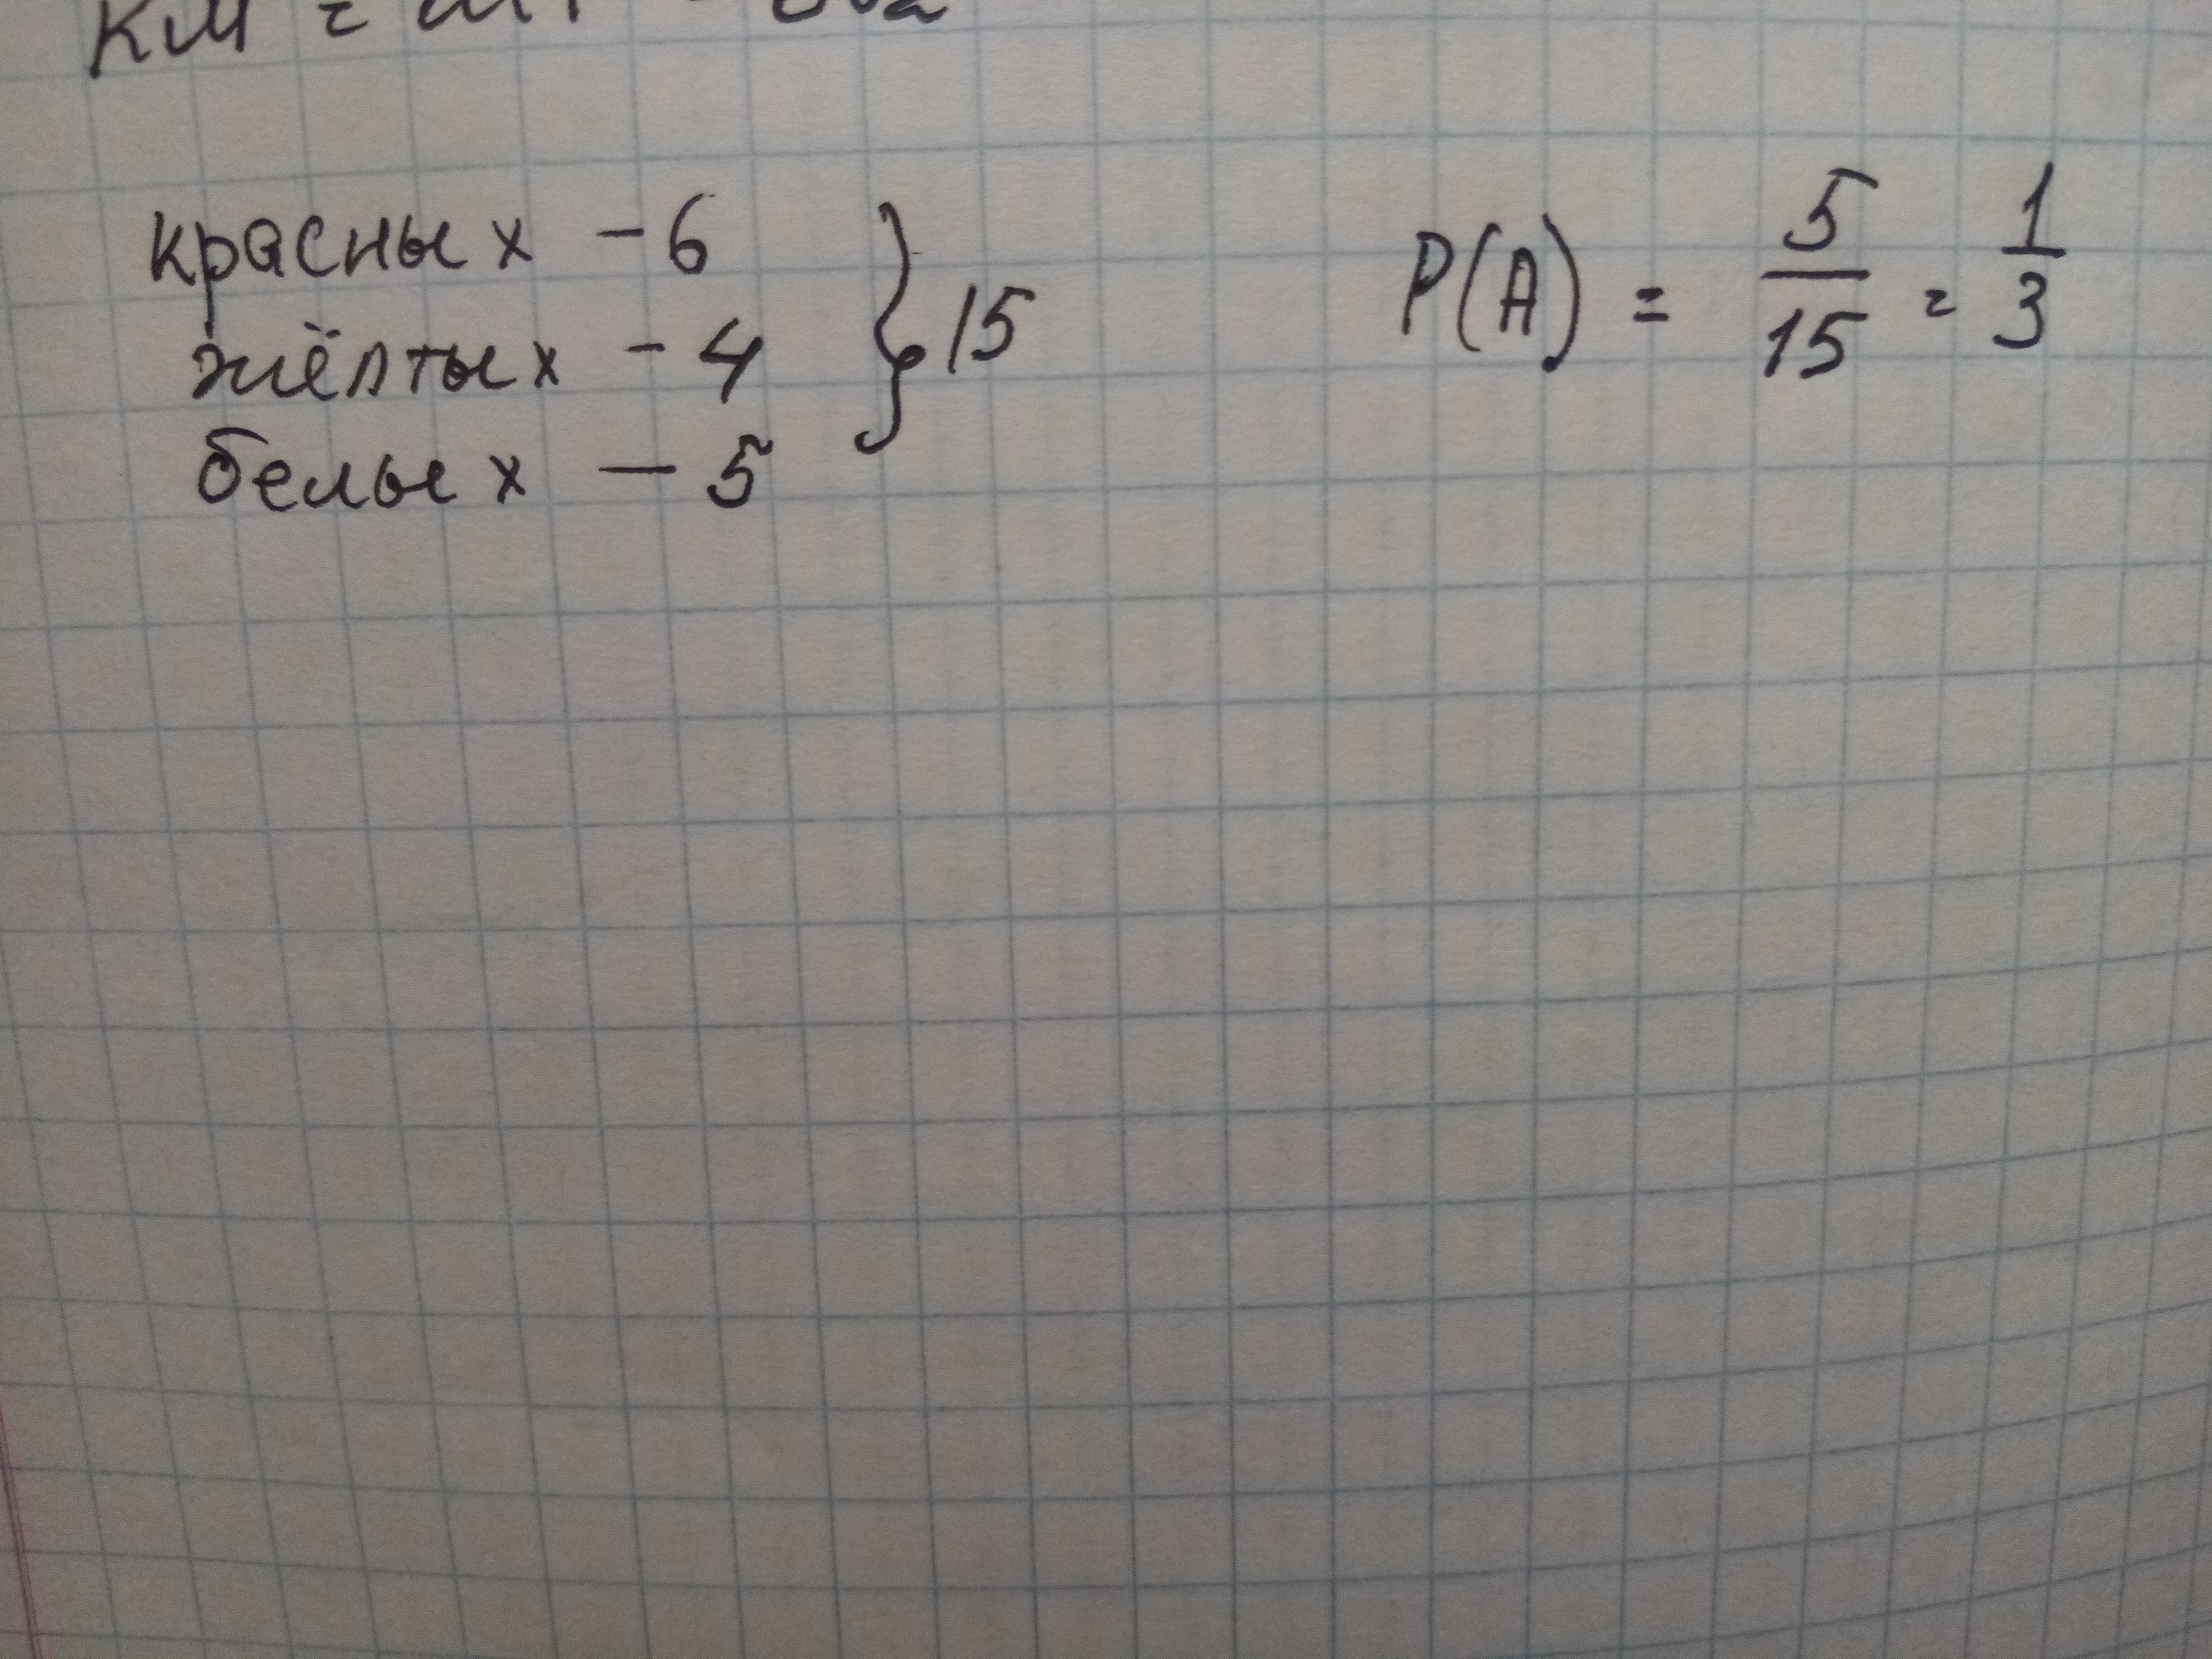 КМ =
красных - 6
жёлтых - 4 } 15
белых - 5
P(A) = 5/15 = 1/3